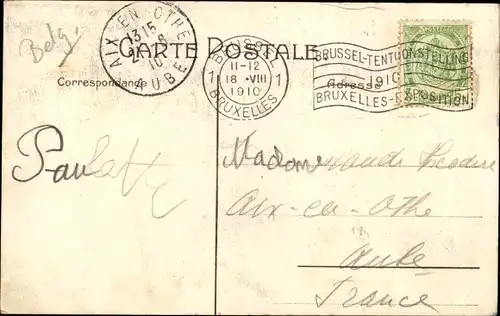 Belg.
AIX-EN-OTHE
13 15
AUBE
CARTE POSTALE
Correspondance
BRUSSEL
1 11-12 1
18 VIII
1910
BRUXELLES
BRUSSEL-TENTOONSTELLING
1910
Adresse
BRUXELLES-EXPOSITION
Paulette
Madame
Aix-en-Othe
Aube
France